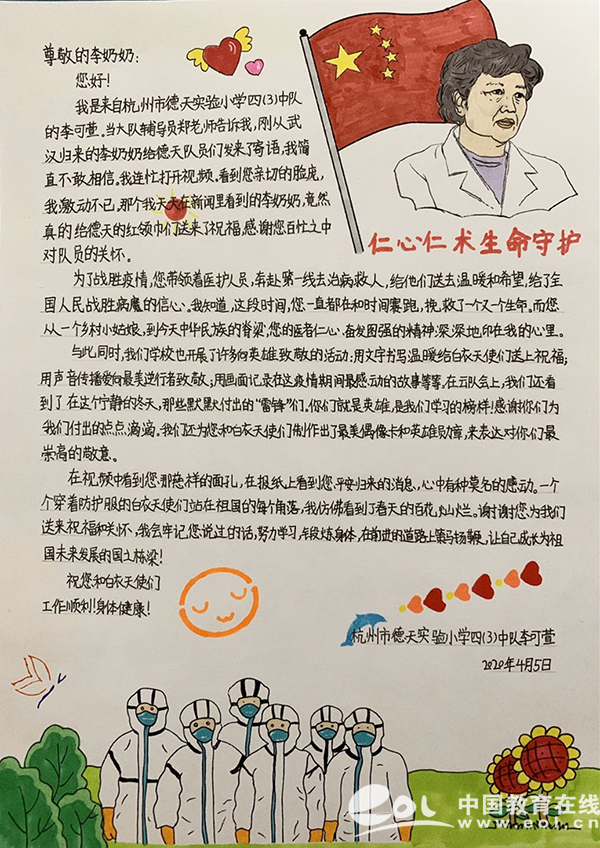 尊敬的李奶奶:
您好!
我是来自杭州市德天实验小学四(3)中队
的李可萱。当大队辅导员郑老师告诉我,刚从武
汉归来的李奶奶给德天队员们发来了寄语,我简
直不敢相信。我连忙打开视频,看到您亲切的脸庞,
我激动不已,那个我天天在新闻里看到的李奶奶,竟然
真的给德天的红领巾们送来了祝福,感谢您百忙之中
对队员的关怀。
仁心仁术生命守护
为了战胜疫情,您带领着医护人员,奔赴第一线去治病救人,给他们送去温暖和希望,给了全
国人民战胜病魔的信心。我知道,这段时间,您一直都在和时间赛跑,挽救了一个又一个生命。而您
从一个乡村小姑娘,到今天中华民族的脊梁,您的医者仁心、奋发图强的精神,深深地印在我的心里。
与此同时,我们学校也开展了许多向英雄致敬的活动:用文字书写温暖给白衣天使们送上祝福;
用声音传播爱向最美逆行者致敬;用画面记录在这疫情期间最感动的故事等等。在云队会上,我们还看
到了在这个宁静的冬天,那些默默付出的“雷锋”们。你们就是英雄,是我们学习的榜样!感谢你们为
我们付出的点点滴滴。我们还为您和白衣天使们制作出了最美偶像卡和英雄勋章,来表达对你们最
崇高的敬意。
在视频中看到您那慈祥的面孔,在报纸上看到您平安归来的消息,心中有种莫名的感动。一个
个穿着防护服的白衣天使们站在祖国的每个角落,我仿佛看到了春天的百花,灿烂。谢谢您为我们
送来祝福和关怀,我会牢记您说过的话,努力学习,锻炼身体,在前进的道路上策马扬鞭,让自己成长为祖
国未来发展的国之栋梁!
祝您和白衣天使们
工作顺利!身体健康!
杭州市德天实验小学四(3)中队李可萱
2020年4月5日
eol 中国教育在线
www.eol.cn